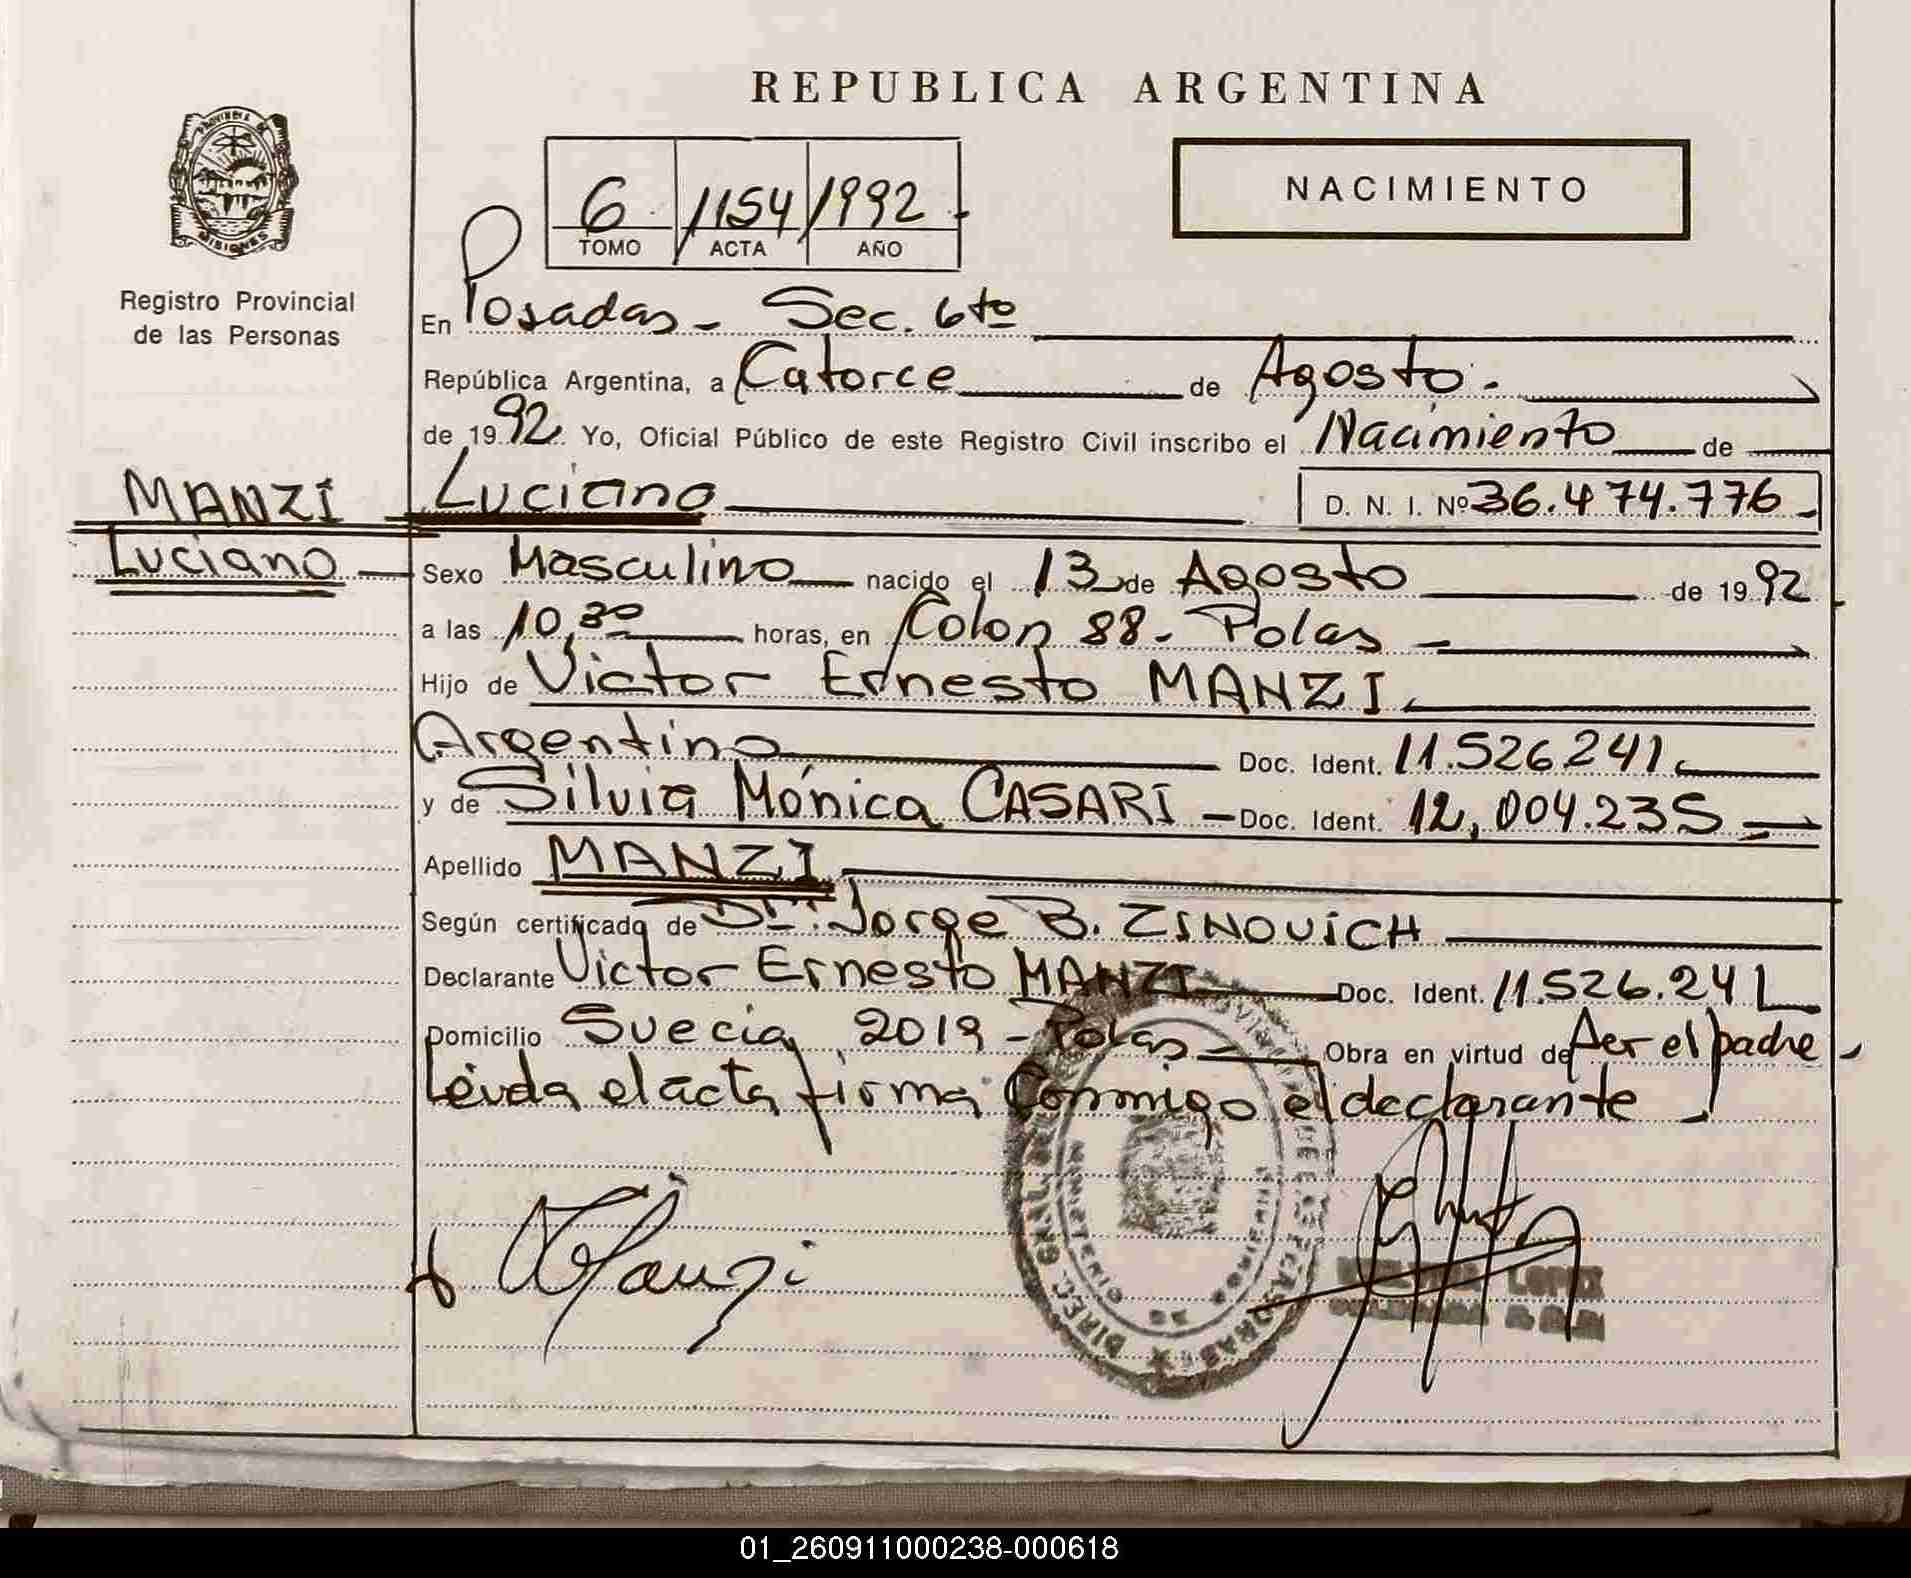 REPUBLICA ARGENTINA
PROVINCIA DE
MISIONES
Registro Provincial
de las Personas
6 1154 1992
TOMO ACTA AÑO
NACIMIENTO
En Posadas - Sec. 6to
República Argentina, a Catorce de Agosto.
de 1992 Yo, Oficial Público de este Registro Civil inscribo el Nacimiento de
MANZI
Luciano
Luciano D. N. I. Nº 36.474.776
Sexo Masculino nacido el 13 de Agosto de 1992
a las 10,30 horas, en Colon 88 - Pdas
Hijo de Victor Ernesto MANZI
Argentino Doc. Ident. 11.526.241
y de Silvia Mónica CASARI - Doc. Ident. 12,004.235
Apellido MANZI
Según certificado de Dr. Jorge B. ZINOVICH
Declarante Victor Ernesto MANZI Doc. Ident. 11.526.241
Domicilio Suecia 2019 - Pdas Obra en virtud de ser el padre
Leída el acta firma Conmigo el declarante
Manzi
LOPEZ
01_260911000238-000618